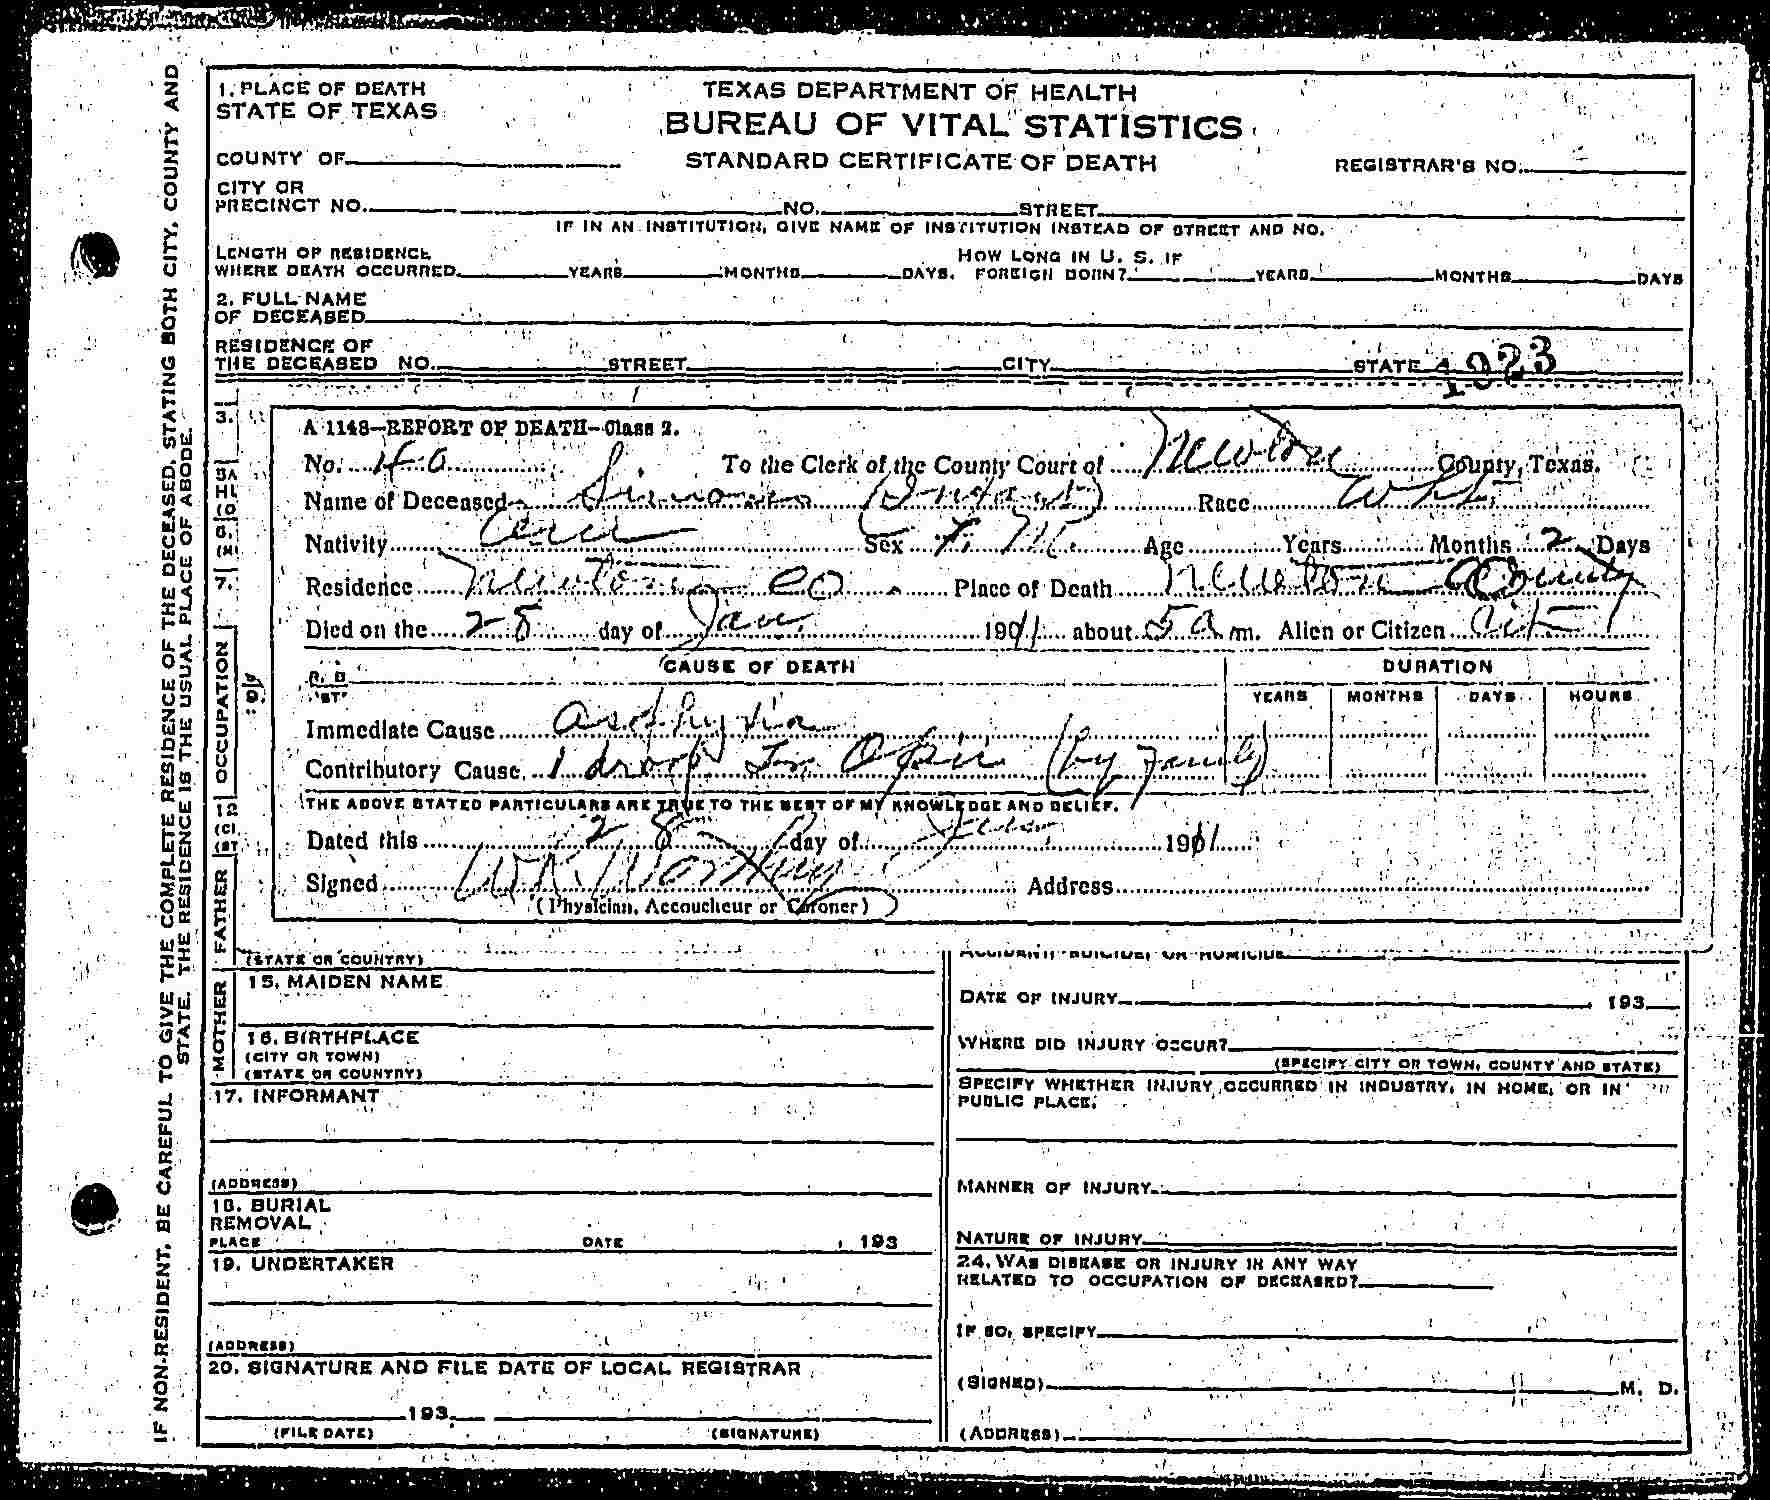 IF NON-RESIDENT, BE CAREFUL TO GIVE THE COMPLETE RESIDENCE OF THE DECEASED, STATING BOTH CITY, COUNTY AND
STATE. THE RESIDENCE IS THE USUAL PLACE OF ABODE.
1. PLACE OF DEATH
STATE OF TEXAS
TEXAS DEPARTMENT OF HEALTH
BUREAU OF VITAL STATISTICS
COUNTY OF
STANDARD CERTIFICATE OF DEATH
REGISTRAR'S NO.
CITY OR
PRECINCT NO. NO. STREET
IF IN AN INSTITUTION, GIVE NAME OF INSTITUTION INSTEAD OF STREET AND NO.
LENGTH OF RESIDENCE HOW LONG IN U. S. IF
WHERE DEATH OCCURRED YEARS MONTHS DAYS. FOREIGN BORN? YEARS MONTHS DAYS
2. FULL NAME
OF DECEASED
RESIDENCE OF
THE DECEASED NO. STREET CITY STATE 1923
3.
A 1148—REPORT OF DEATH—Class 2.
No. 40 To the Clerk of the County Court of Newton County, Texas.
Name of Deceased Simons (Infant) Race Wht
Nativity Sex Age Years Months 2 Days
Residence Newton Co. Place of Death Newton County
Died on the 28 day of Jan. 1901 about 5 a m. Alien or Citizen Cit
CAUSE OF DEATH DURATION
YEARS MONTHS DAYS HOURS
Immediate Cause Asphyxia
Contributory Cause 1 drop Opii (by Family)
THE ABOVE STATED PARTICULARS ARE TRUE TO THE BEST OF MY KNOWLEDGE AND BELIEF.
Dated this 28 day of Jan 1901
Signed Address
(Physician, Accoucheur or Coroner)
7.
OCCUPATION
12
FATHER
MOTHER
(STATE OR COUNTRY)
15. MAIDEN NAME
16. BIRTHPLACE
(CITY OR TOWN)
(STATE OR COUNTRY)
17. INFORMANT
(ADDRESS)
18. BURIAL
REMOVAL
PLACE DATE , 193
19. UNDERTAKER
(ADDRESS)
20. SIGNATURE AND FILE DATE OF LOCAL REGISTRAR
193
(FILE DATE) (SIGNATURE)
ACCIDENT, SUICIDE, OR HOMICIDE
DATE OF INJURY , 193
WHERE DID INJURY OCCUR?
(SPECIFY CITY OR TOWN, COUNTY AND STATE)
SPECIFY WHETHER INJURY OCCURRED IN INDUSTRY, IN HOME, OR IN
PUBLIC PLACE.
MANNER OF INJURY
NATURE OF INJURY
24. WAS DISEASE OR INJURY IN ANY WAY
RELATED TO OCCUPATION OF DECEASED?
IF SO, SPECIFY
(SIGNED) M. D.
(ADDRESS)